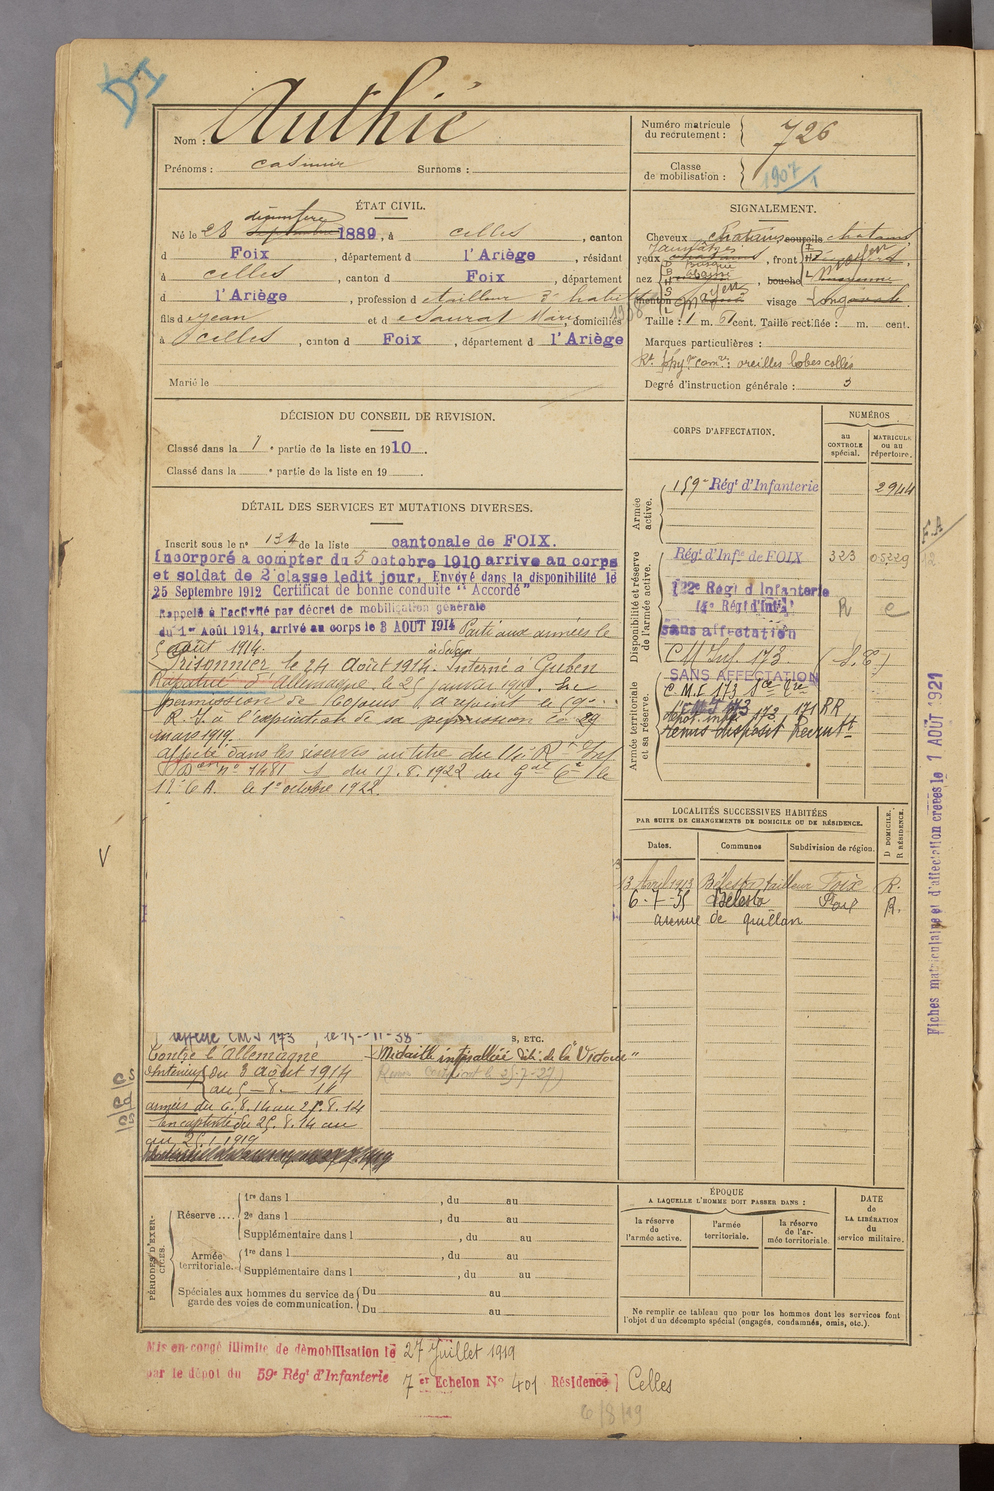 DI
Nom : Authié
Prénoms : Casimir Surnoms :
Numéro matricule du recrutement : 726
Classe de mobilisation : 1907/1
ÉTAT CIVIL.
Né le 28 décembre 1889, à Celles, canton
d Foix, département d l'Ariège, résidant
à Celles, canton d Foix, département
d l'Ariège, profession de tailleur d'habits
fils de Jean et de Saurat Marie, domiciliés
à Celles, canton d Foix, département d l'Ariège
Marié le
SIGNALEMENT.
Cheveux châtains sourcils châtains
yeux, front
nez, bouche
menton moyen visage
Taille : 1 m. 61 cent. Taille rectifiée : m. cent.
Marques particulières :
oreilles lobes collés
Degré d'instruction générale : 3
DÉCISION DU CONSEIL DE REVISION.
Classé dans la 1e partie de la liste en 1910.
Classé dans la e partie de la liste en 19
DÉTAIL DES SERVICES ET MUTATIONS DIVERSES.
Inscrit sous le n° 134 de la liste cantonale de FOIX.
Incorporé à compter du 5 octobre 1910 arrivé au corps
et soldat de 2e classe ledit jour. Envoyé dans la disponibilité le
25 Septembre 1912 Certificat de bonne conduite "Accordé"
Rappelé à l'activité par décret de mobilisation générale
du 1er Août 1914, arrivé au corps le 3 AOUT 1914 Parti aux armées le
5 août 1914.
Prisonnier le 24 Août 1914. Interné à Guben
Rapatrié d'Allemagne le 25 janvier 1919. En
permission de 60 jours a rejoint le 59e
R. I. à l'expiration de sa permission le 29
mars 1919.
affecté dans les réserves au titre du 14e R
n° 1481 du 17.8.1922 du Gal Ct le
17e C A. le 1er octobre 1922.
affecté CMI 173, le 15-11-38
CORPS D'AFFECTATION.
NUMÉROS
au CONTROLE spécial.
MATRICULE ou au répertoire.
Armée active.
159e Régt d'Infanterie 2944
Disponibilité et réserve de l'armée active.
Régt d'Infie de FOIX 323 05229
122e Régt d'Infanterie
14e Régt d'Infie R C
sans affectation
C M Inf. 173. (S.E)
SANS AFFECTATION
Armée territoriale et sa réserve.
C. M. I 173
CMI 173
Dépôt inf. 173 171 RR
remis disposit Recrutt
F.A
12
LOCALITÉS SUCCESSIVES HABITÉES
PAR SUITE DE CHANGEMENTS DE DOMICILE OU DE RÉSIDENCE.
Dates. Communes Subdivision de région. D DOMICILE. R RÉSIDENCE.
13 Avril 1913 Bélesta, tailleur Foix R.
6-7-35 Bélesta Foix R.
avenue de quillan
Fiches matriculaire et d'affectation créées le 1 AOUT 1921
V
S, ETC.
Contre l'Allemagne
Intérieur du 3 août 1914
au 5-8-14
armées du 6.8.14 au 24.8.14
en captivité du 25.8.14 au
au 25.1.1919
Médaille interalliée dite de la "Victoire"
PÉRIODES D'EXERCICES.
Réserve .... 1re dans l , du au
2e dans l , du au
Supplémentaire dans l , du au
Armée territoriale. 1re dans l , du au
Supplémentaire dans l , du au
Spéciales aux hommes du service de garde des voies de communication. Du au
Du au
ÉPOQUE
A LAQUELLE L'HOMME DOIT PASSER DANS :
la réserve de l'armée active.
l'armée territoriale.
la réserve de l'armée territoriale.
DATE de LA LIBÉRATION du service militaire.
Ne remplir ce tableau que pour les hommes dont les services font
l'objet d'un décompte spécial (engagés, condamnés, omis, etc.).
Mis en congé illimité de démobilisation le 27 Juillet 1919
par le dépôt du 59e Régt d'Infanterie 7 er Echelon N° 401 Résidence Celles
6/8/19